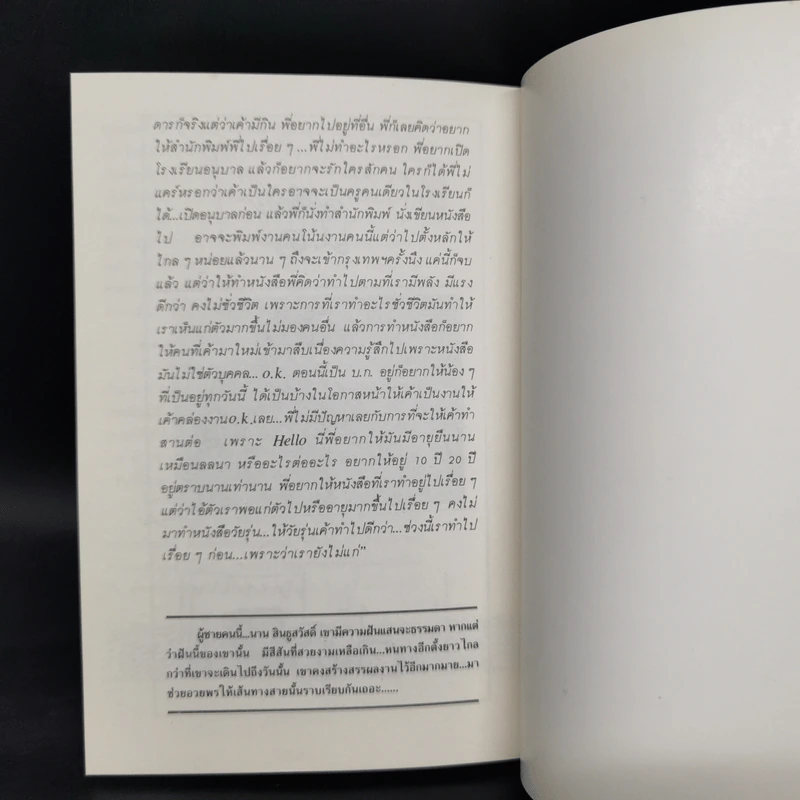 ดารก็จริงแต่ว่าเค้ามีกิน พี่อยากไปอยู่ที่อื่น พี่ก็เลยคิดว่าอยาก
ให้สำนักพิมพ์พี่ไปเรื่อย ๆ...พี่ไม่ทำอะไรหรอก พี่อยากเปิด
โรงเรียนอนุบาล แล้วก็อยากจะรักใครสักคน ใครก็ได้พี่ไม่
แคร์หรอกว่าเค้าเป็นใครอาจจะเป็นครูคนเดียวในโรงเรียนก็
ได้...เปิดอนุบาลก่อน แล้วพี่ก็นั่งทำสำนักพิมพ์ นั่งเขียนหนังสือ
ไป อาจจะพิมพ์งานคนโน้นงานคนนี้แต่ว่าไปตั้งหลักให้
ไกล ๆ หน่อยแล้วนาน ๆ ถึงจะเข้ากรุงเทพฯครั้งนึง แค่นี้ก็จบ
แล้ว แต่ว่าให้ทำหนังสือพี่คิดว่าทำไปตามที่เรามีพลัง มีแรง
ดีกว่า คงไม่ชั่วชีวิต เพราะการที่เราทำอะไรชั่วชีวิตมันทำให้
เราเห็นแก่ตัวมากขึ้นไม่มองคนอื่น แล้วการทำหนังสือก็อยาก
ให้คนที่เค้ามาใหม่เข้ามาสืบเนื่องความรู้สึกไปเพราะหนังสือ
มันไม่ใช่ตัวบุคคล... o.k. ตอนนี้เป็น บ.ก. อยู่ก็อยากให้น้อง ๆ
ที่เป็นอยู่ทุกวันนี้ ได้เป็นบ้างในโอกาสหน้าให้เค้าเป็นงานให้
เค้าคล่องงานo.k.เลย...พี่ไม่มีปัญหาเลยกับการที่จะให้เค้าทำ
สานต่อ เพราะ Hello นี่พี่อยากให้มันมีอายุยืนนาน
เหมือนลลนา หรืออะไรต่ออะไร อยากให้อยู่ 10 ปี 20 ปี
อยู่ตราบนานเท่านาน พี่อยากให้หนังสือที่เราทำอยู่ไปเรื่อย ๆ
แต่ว่าไอ้ตัวเราพอแก่ตัวไปหรืออายุมากขึ้นไปเรื่อย ๆ คงไม่
มาทำหนังสือวัยรุ่น...ให้วัยรุ่นเค้าทำไปดีกว่า...ช่วงนี้เราทำไป
เรื่อย ๆ ก่อน...เพราะว่าเรายังไม่แก่”
ผู้ชายคนนี้...นาน สินธูสวัสดิ์ เขามีความฝันแสนจะธรรมดา หากแต่
ว่าฝันนี้ของเขานั้น มีสีสันที่สวยงามเหลือเกิน...หนทางอีกตั้งยาวไกล
กว่าที่เขาจะเดินไปถึงวันนั้น เขาคงสร้างสรรผลงานไว้อีกมากมาย...มา
ช่วยอวยพรให้เส้นทางสายนั้นราบเรียบกันเถอะ......